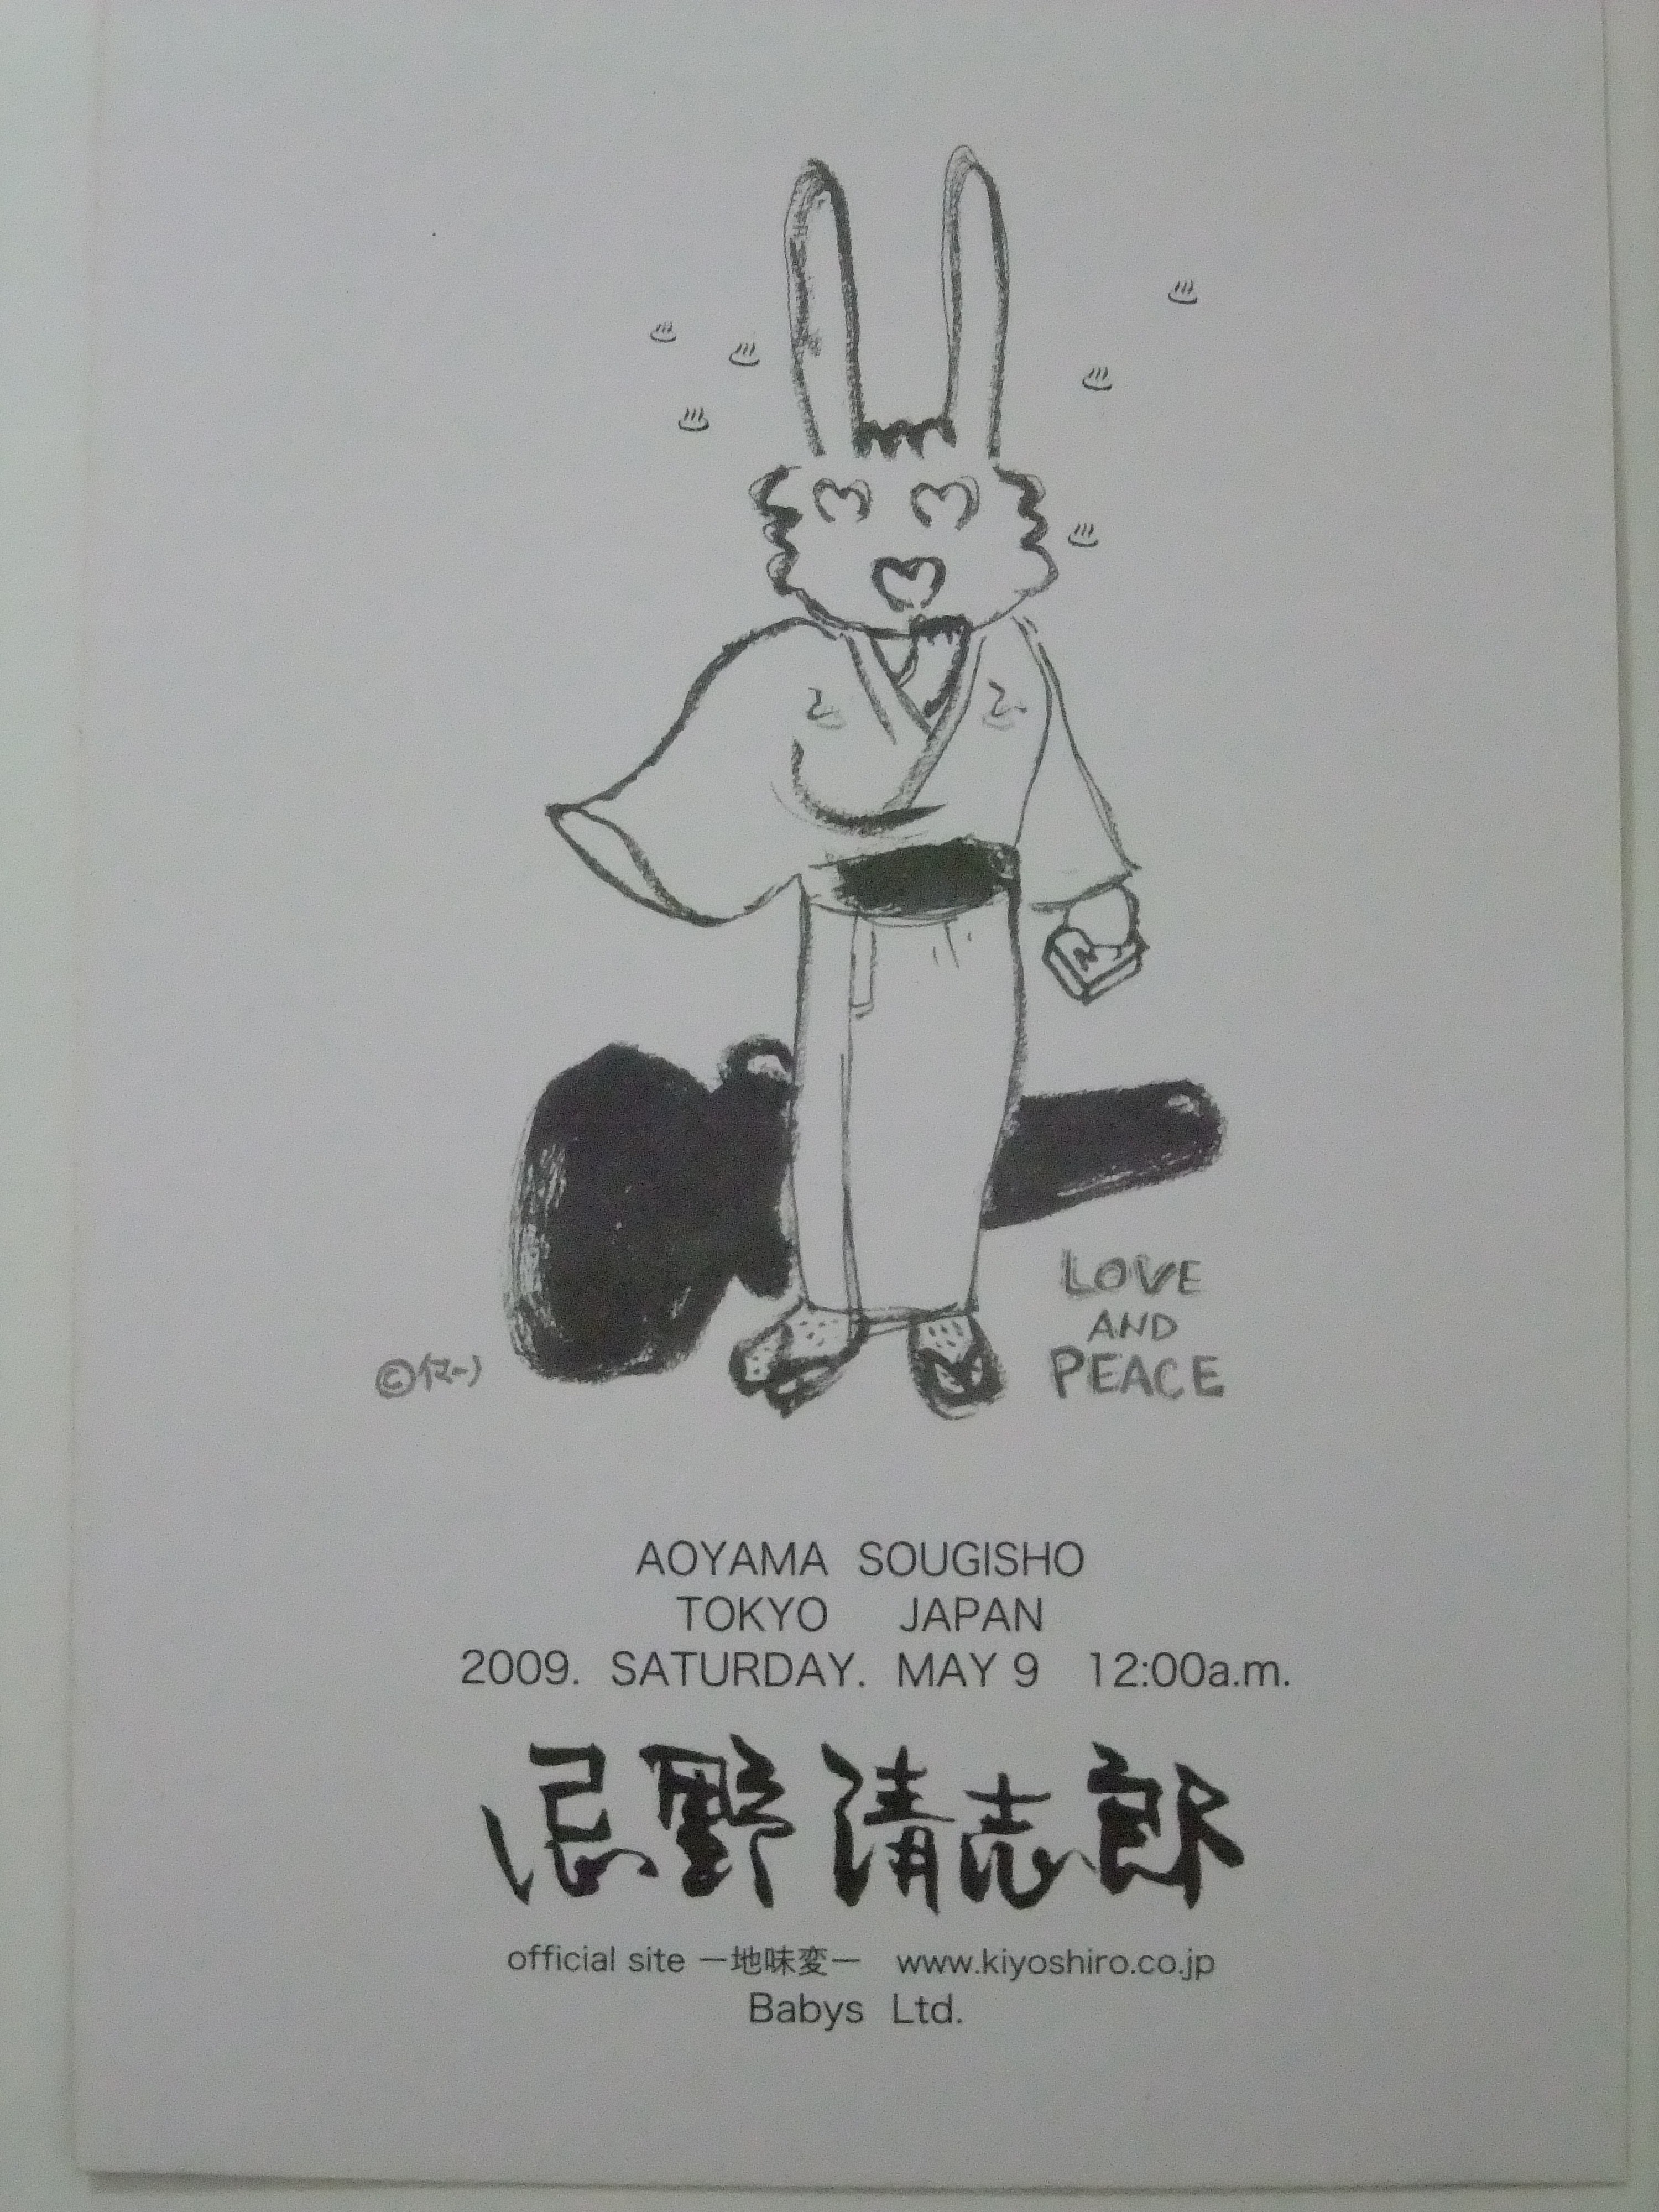 LOVE
AND
PEACE
©イマーノ
AOYAMA SOUGISHO
TOKYO JAPAN
2009. SATURDAY. MAY 9 12:00a.m.
忌野清志郎
official site ー地味変ー www.kiyoshiro.co.jp
Babys Ltd.